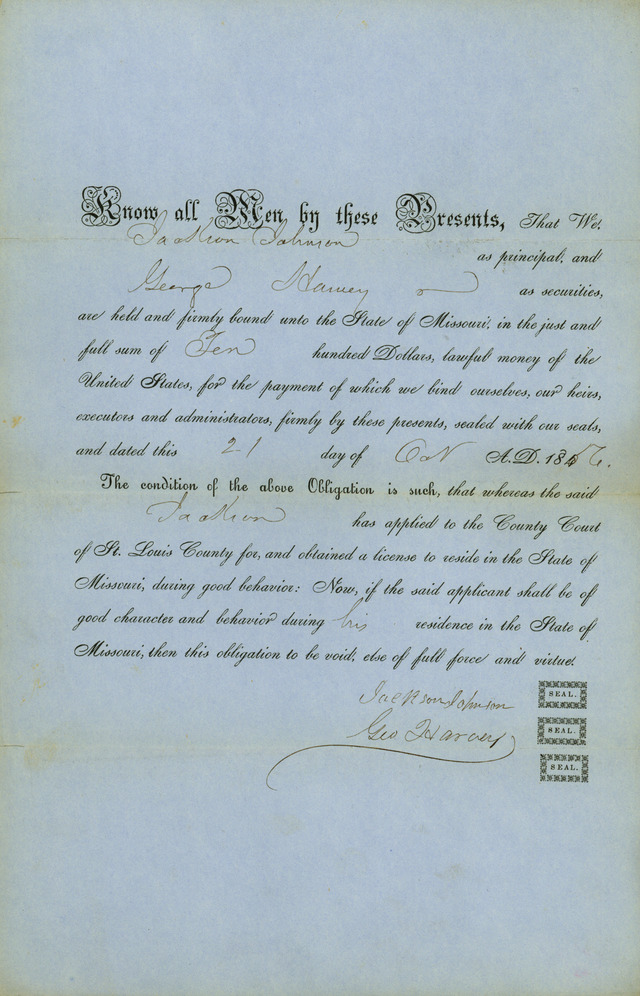 Know all Men by these Presents, That We,
Jackson Johnson
as principal, and
George Harvey
as securities,
are held and firmly bound unto the State of Missouri, in the just and
full sum of Ten hundred Dollars, lawful money of the
United States, for the payment of which we bind ourselves, our heirs,
executors and administrators, firmly by these presents, sealed with our seals,
and dated this 21 day of Oct A.D. 1856.
The condition of the above Obligation is such, that whereas the said
Jackson has applied to the County Court
of St. Louis County for, and obtained a license to reside in the State of
Missouri, during good behavior: Now, if the said applicant shall be of
good character and behavior during his residence in the State of
Missouri, then this obligation to be void, else of full force and virtue.
Jackson Johnson SEAL.
Geo Harvey SEAL.
SEAL.